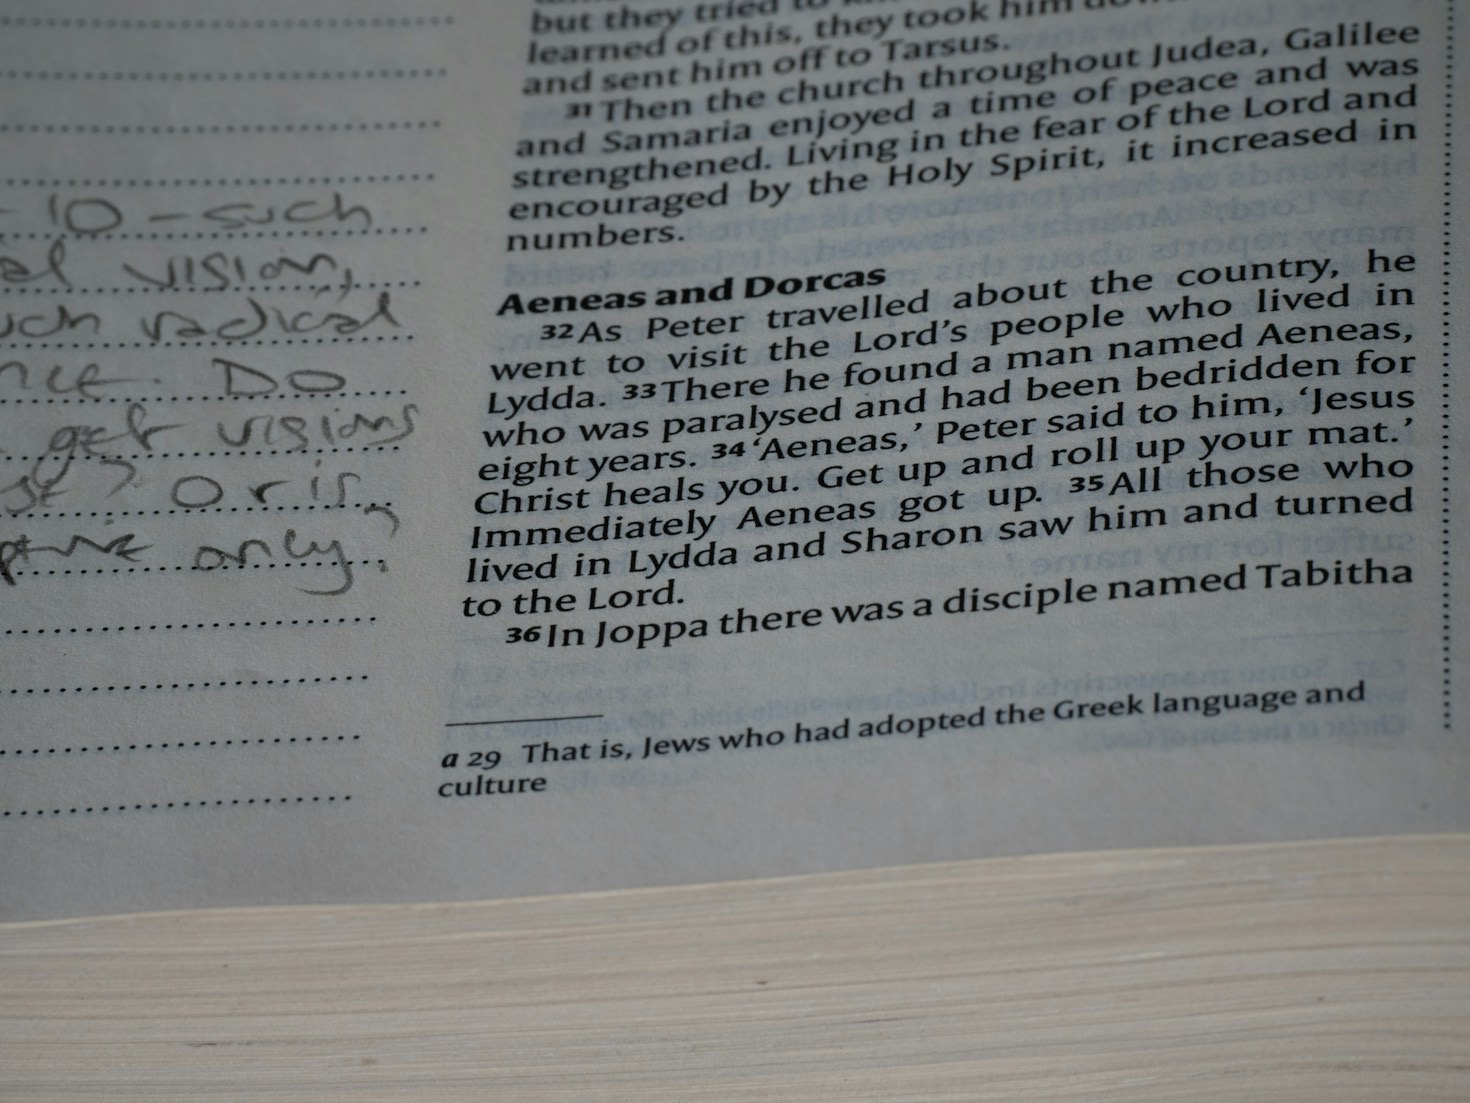 but they tried to
learned of this, they took him
and sent him off to Tarsus.
31 Then the church throughout Judea, Galilee
and Samaria enjoyed a time of peace and was
strengthened. Living in the fear of the Lord and
encouraged by the Holy Spirit, it increased in
numbers.
Aeneas and Dorcas
32 As Peter travelled about the country, he
went to visit the Lord's people who lived in
Lydda. 33 There he found a man named Aeneas,
who was paralysed and had been bedridden for
eight years. 34 ‘Aeneas,’ Peter said to him, ‘Jesus
Christ heals you. Get up and roll up your mat.’
Immediately Aeneas got up. 35 All those who
lived in Lydda and Sharon saw him and turned
to the Lord.
36 In Joppa there was a disciple named Tabitha
a 29 That is, Jews who had adopted the Greek language and
culture
-10 - such
vision,
radical
Do
get visions
? Or is
only?